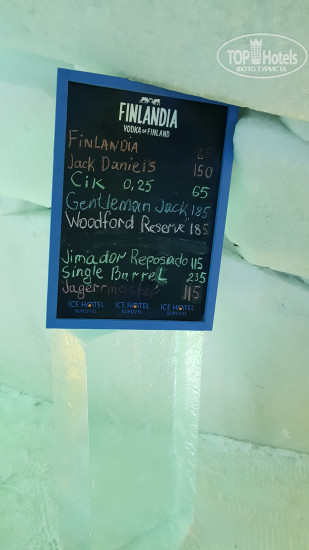 TOP Hotels
ФОТО ТУРИСТА
FINLANDIA
VODKA OF FINLAND
FINLANDIA
Jack Daniel's 150
Cik 0,25 65
Gentleman Jack 185
Woodford Reserve 185
Jimador Reposado 115
Single Barrel 235
Jagermaster 115
ICE HOTEL ICE HOTEL ICE HOTEL
BUKOVEL BUKOVEL BUKOVEL